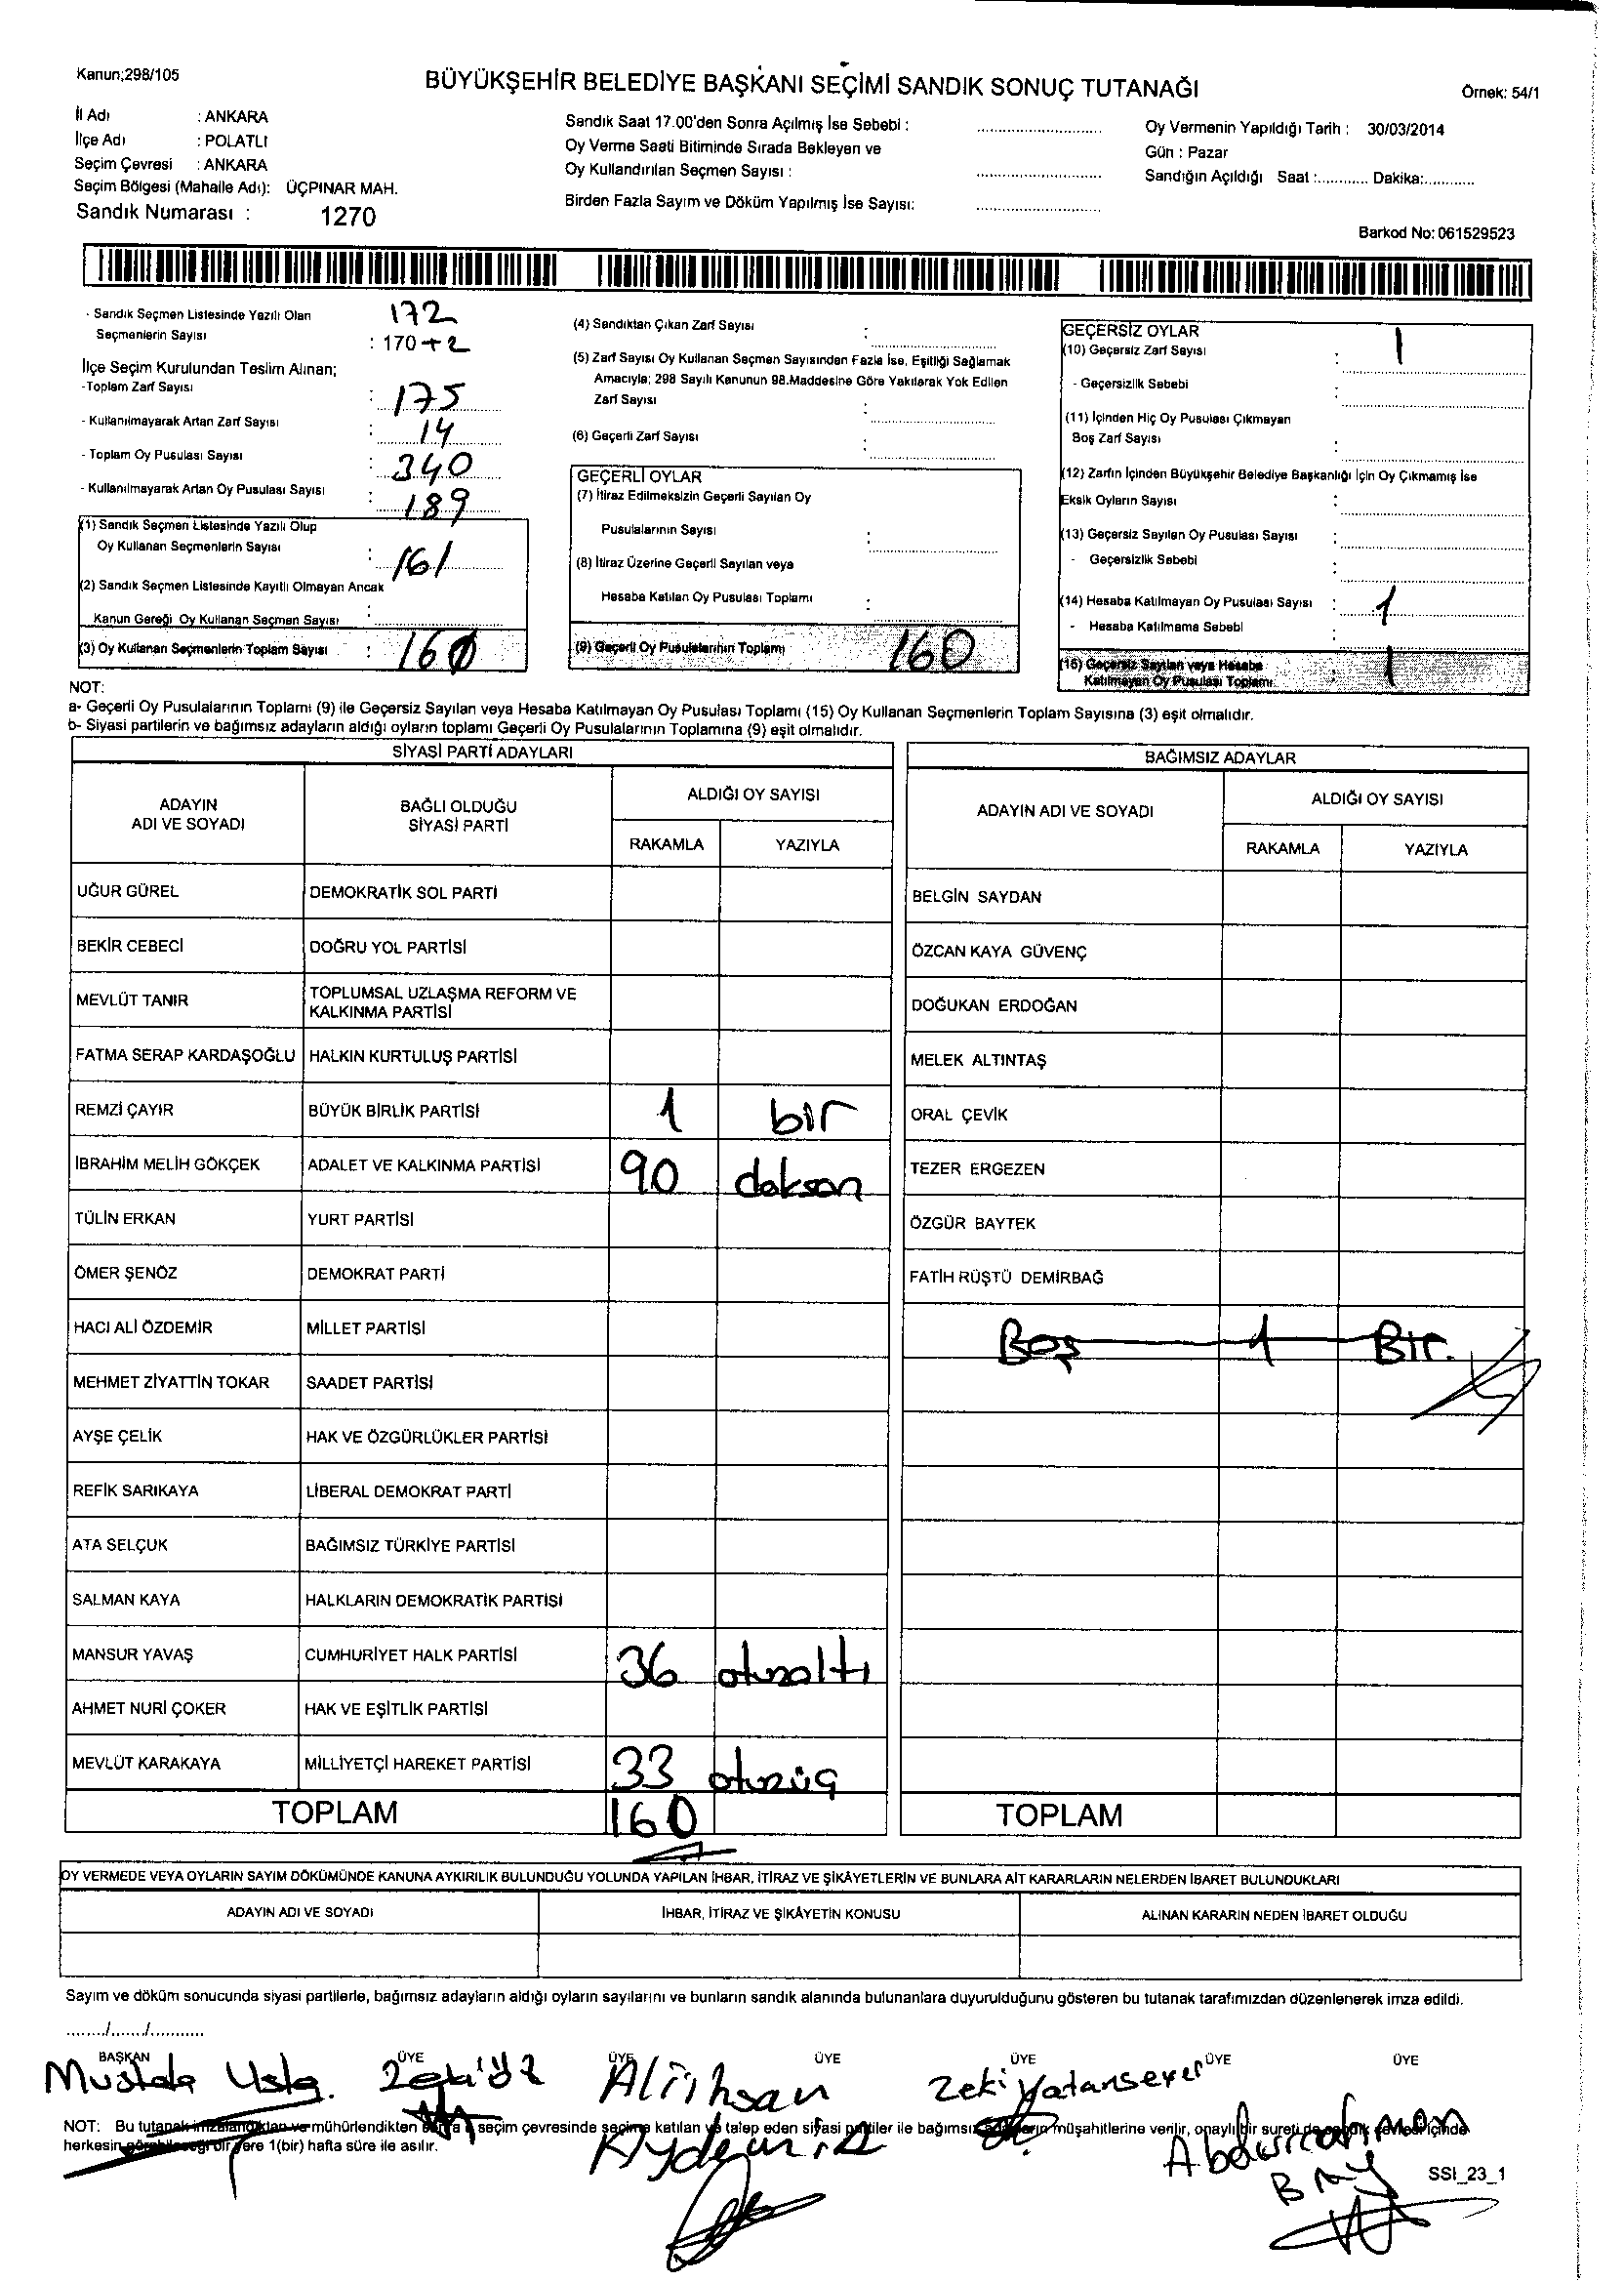 Kanun;298/105
BÜYÜKŞEHİR BELEDİYE BAŞKANI SEÇİMİ SANDIK SONUÇ TUTANAĞI
Örnek: 54/1
İl Adı : ANKARA
İlçe Adı : POLATLI
Seçim Çevresi : ANKARA
Seçim Bölgesi (Mahalle Adı): ÜÇPINAR MAH.
Sandık Numarası : 1270
Sandık Saat 17.00'den Sonra Açılmış İse Sebebi :
Oy Verme Saati Bitiminde Sırada Bekleyen ve
Oy Kullandırılan Seçmen Sayısı :
Birden Fazla Sayım ve Döküm Yapılmış İse Sayısı:
Oy Vermenin Yapıldığı Tarih : 30/03/2014
Gün : Pazar
Sandığın Açıldığı Saat :............ Dakika:............
Barkod No: 061529523
- Sandık Seçmen Listesinde Yazılı Olan 172
Seçmenlerin Sayısı : 170+2
İlçe Seçim Kurulundan Teslim Alınan;
-Toplam Zarf Sayısı : 175
- Kullanılmayarak Artan Zarf Sayısı : 14
- Toplam Oy Pusulası Sayısı : 340
- Kullanılmayarak Artan Oy Pusulası Sayısı : 189
(1) Sandık Seçmen Listesinde Yazılı Olup
Oy Kullanan Seçmenlerin Sayısı : 161
(2) Sandık Seçmen Listesinde Kayıtlı Olmayan Ancak
Kanun Gereği Oy Kullanan Seçmen Sayısı :
(3) Oy Kullanan Seçmenlerin Toplam Sayısı : 160
(4) Sandıktan Çıkan Zarf Sayısı :
(5) Zarf Sayısı Oy Kullanan Seçmen Sayısından Fazla İse, Eşitliği Sağlamak
Amacıyla; 298 Sayılı Kanunun 98.Maddesine Göre Yakılarak Yok Edilen
Zarf Sayısı :
(6) Geçerli Zarf Sayısı :
GEÇERLİ OYLAR
(7) İtiraz Edilmeksizin Geçerli Sayılan Oy
Pusulalarının Sayısı :
(8) İtiraz Üzerine Geçerli Sayılan veya
Hesaba Katılan Oy Pusulası Toplamı :
(9) Geçerli Oy Pusulalarının Toplamı 160
GEÇERSİZ OYLAR
(10) Geçersiz Zarf Sayısı : 1
- Geçersizlik Sebebi :
(11) İçinden Hiç Oy Pusulası Çıkmayan
Boş Zarf Sayısı :
(12) Zarfın İçinden Büyükşehir Belediye Başkanlığı İçin Oy Çıkmamış İse
Eksik Oyların Sayısı :
(13) Geçersiz Sayılan Oy Pusulası Sayısı :
- Geçersizlik Sebebi :
(14) Hesaba Katılmayan Oy Pusulası Sayısı : 1
- Hesaba Katılmama Sebebi :
(15) Geçersiz Sayılan veya Hesaba
Katılmayan Oy Pusulası Toplamı : 1
NOT:
a- Geçerli Oy Pusulalarının Toplamı (9) ile Geçersiz Sayılan veya Hesaba Katılmayan Oy Pusulası Toplamı (15) Oy Kullanan Seçmenlerin Toplam Sayısına (3) eşit olmalıdır.
b- Siyasi partilerin ve bağımsız adayların aldığı oyların toplamı Geçerli Oy Pusulalarının Toplamına (9) eşit olmalıdır.
SİYASİ PARTİ ADAYLARI
ADAYIN ADI VE SOYADI
BAĞLI OLDUĞU SİYASİ PARTİ
ALDIĞI OY SAYISI
RAKAMLA YAZIYLA
UĞUR GÜREL DEMOKRATİK SOL PARTİ
BEKİR CEBECİ DOĞRU YOL PARTİSİ
MEVLÜT TANIR TOPLUMSAL UZLAŞMA REFORM VE KALKINMA PARTİSİ
FATMA SERAP KARDAŞOĞLU HALKIN KURTULUŞ PARTİSİ
REMZİ ÇAYIR BÜYÜK BİRLİK PARTİSİ 1 bir
İBRAHİM MELİH GÖKÇEK ADALET VE KALKINMA PARTİSİ 90 doksan
TÜLİN ERKAN YURT PARTİSİ
ÖMER ŞENÖZ DEMOKRAT PARTİ
HACI ALİ ÖZDEMİR MİLLET PARTİSİ
MEHMET ZİYATTİN TOKAR SAADET PARTİSİ
AYŞE ÇELİK HAK VE ÖZGÜRLÜKLER PARTİSİ
REFİK SARIKAYA LİBERAL DEMOKRAT PARTİ
ATA SELÇUK BAĞIMSIZ TÜRKİYE PARTİSİ
SALMAN KAYA HALKLARIN DEMOKRATİK PARTİSİ
MANSUR YAVAŞ CUMHURİYET HALK PARTİSİ 36 otuzaltı
AHMET NURİ ÇOKER HAK VE EŞİTLİK PARTİSİ
MEVLÜT KARAKAYA MİLLİYETÇİ HAREKET PARTİSİ 33 otuzüç
TOPLAM 160
BAĞIMSIZ ADAYLAR
ADAYIN ADI VE SOYADI
ALDIĞI OY SAYISI
RAKAMLA YAZIYLA
BELGİN SAYDAN
ÖZCAN KAYA GÜVENÇ
DOĞUKAN ERDOĞAN
MELEK ALTINTAŞ
ORAL ÇEVİK
TEZER ERGEZEN
ÖZGÜR BAYTEK
FATİH RÜŞTÜ DEMİRBAĞ
Boş 1 Bir.
TOPLAM
OY VERMEDE VEYA OYLARIN SAYIM DÖKÜMÜNDE KANUNA AYKIRILIK BULUNDUĞU YOLUNDA YAPILAN İHBAR, İTİRAZ VE ŞİKÂYETLERİN VE BUNLARA AİT KARARLARIN NELERDEN İBARET BULUNDUKLARI
ADAYIN ADI VE SOYADI İHBAR, İTİRAZ VE ŞİKÂYETİN KONUSU ALINAN KARARIN NEDEN İBARET OLDUĞU
Sayım ve döküm sonucunda siyasi partilerle, bağımsız adayların aldığı oyların sayılarını ve bunların sandık alanında bulunanlara duyurulduğunu gösteren bu tutanak tarafımızdan düzenlenerek imza edildi.
......../......./...........
BAŞKAN ÜYE ÜYE ÜYE ÜYE ÜYE ÜYE
Mustafa Usta. Alihsan Zeki Vatansever
NOT: Bu tutanak imzalandıktan ve mühürlendikten sonra seçim çevresinde seçime katılan ve talep eden siyasi partiler ile bağımsız adayların müşahitlerine verilir, onaylı bir sureti de sandık çevresi içinde
herkesin görebileceği bir yere 1(bir) hafta süre ile asılır.
Aydemir Abdurrahman
SSI_23_1